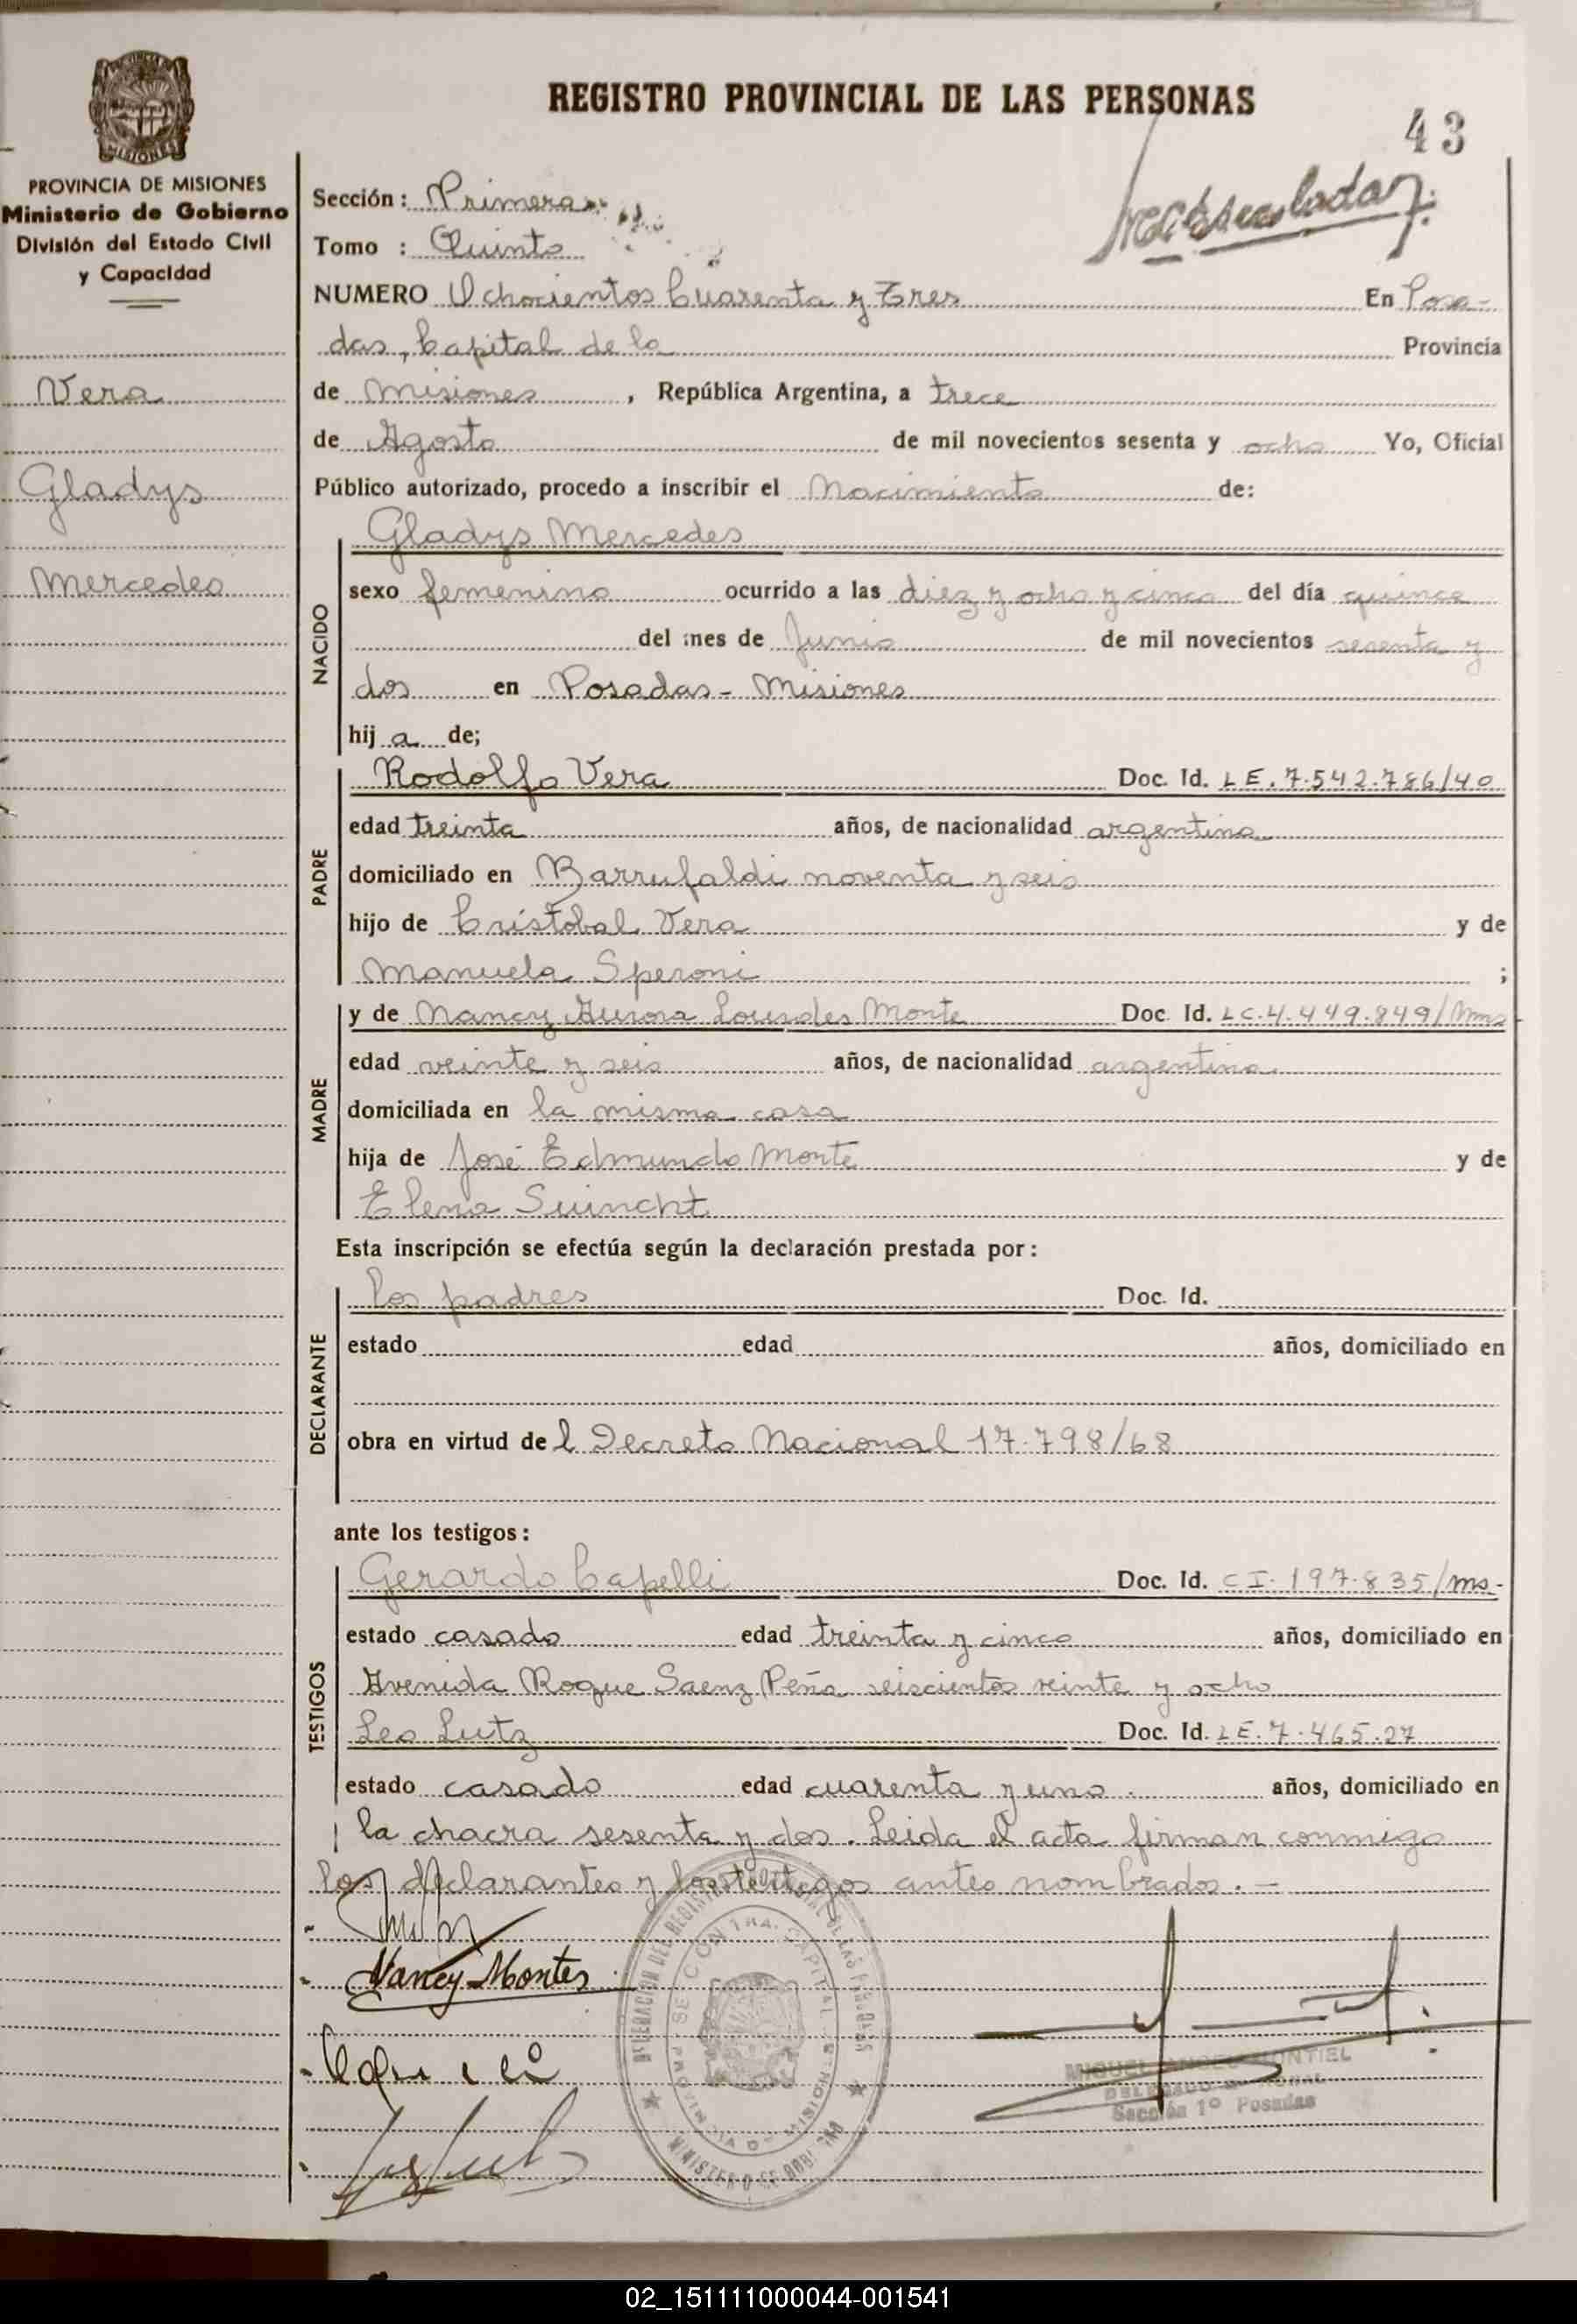 REGISTRO PROVINCIAL DE LAS PERSONAS
43
MISIONES
PROVINCIA DE MISIONES
Ministerio de Gobierno
División del Estado Civil
y Capacidad
Vera
Gladys
Mercedes
Sección: Primera
Tomo : Quinto
NUMERO Ochocientos Cuarenta y Tres En Posa-
das, Capital de la Provincia
de Misiones, República Argentina, a trece
de Agosto de mil novecientos sesenta y ocho Yo, Oficial
Público autorizado, procedo a inscribir el Nacimiento de:
NACIDO
Gladys Mercedes
sexo femenino ocurrido a las diez y ocho y cinco del día quince
del mes de Junio de mil novecientos sesenta y
dos en Posadas - Misiones
hij a de;
PADRE
Rodolfo Vera Doc. Id. LE. 7.542.786/40
edad treinta años, de nacionalidad argentina
domiciliado en Barrufaldi noventa y seis
hijo de Cristobal Vera y de
Manuela Speroni ;
MADRE
y de Nancy Aurora Lourdes Monte Doc. Id. LC. 4.449.849/Mns
edad veinte y seis años, de nacionalidad argentina
domiciliada en la misma casa
hija de José Edmundo Monte y de
Elena Suincht
Esta inscripción se efectúa según la declaración prestada por:
DECLARANTE
los padres Doc. Id.
estado edad años, domiciliado en
obra en virtud de l Decreto Nacional 17.798/68
ante los testigos:
TESTIGOS
Gerardo Capelli Doc. Id. CI. 197.835/ms.
estado casado edad treinta y cinco años, domiciliado en
Avenida Roque Saenz Peña seiscientos veinte y ocho
Leo Lutz Doc. Id. LE. 7.465.27
estado casado edad cuarenta y uno. años, domiciliado en
la chacra sesenta y dos. Leida el acta firman conmigo
los declarantes y los testigos antes nombrados. -
Nancy Montes
MIGUEL ANGEL MONTIEL
Sección 1º Posadas
02_151111000044-001541